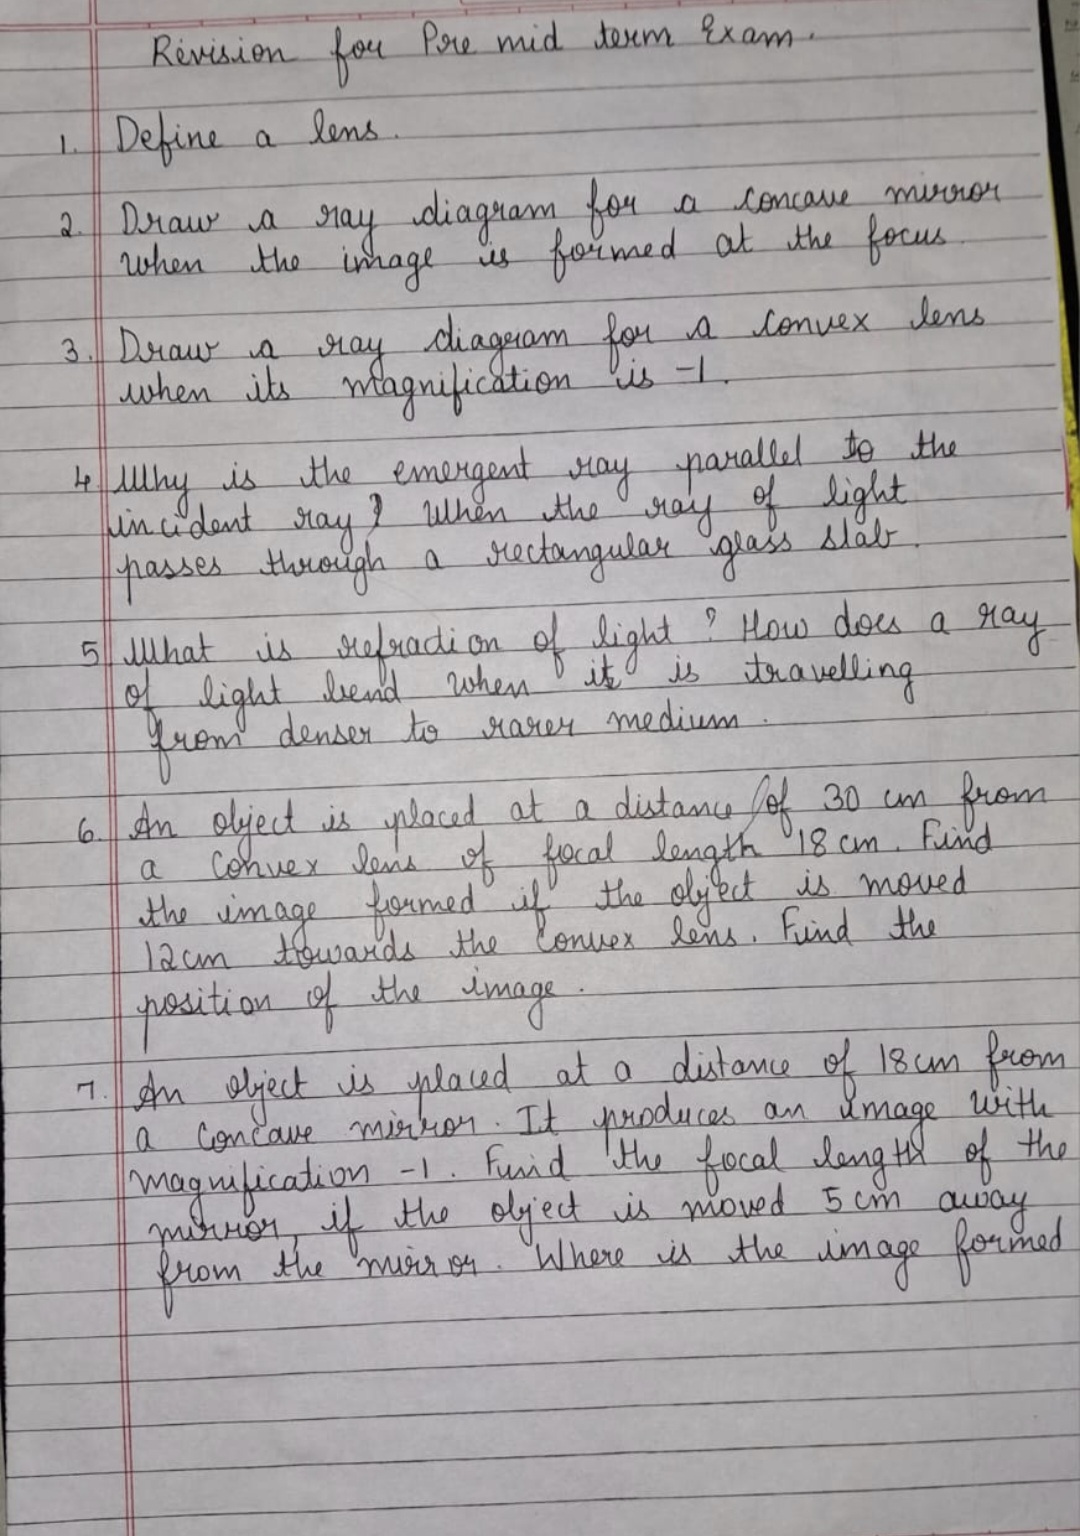 Revision for Pre mid term Exam.
1. Define a lens.
2. Draw a ray diagram for a concave mirror
when the image is formed at the focus.
3. Draw a ray diagram for a convex lens
when its magnification is -1.
4. Why is the emergent ray parallel to the
incident ray? When the ray of light
passes through a rectangular glass slab.
5. What is refraction of light? How does a ray
of light bend when it is travelling
from denser to rarer medium.
6. An object is placed at a distance of 30 cm from
a convex lens of focal length 18 cm. Find
the image formed if the object is moved
12cm towards the convex lens. Find the
position of the image.
7. An object is placed at a distance of 18cm from
a concave mirror. It produces an image with
magnification -1. Find the focal length of the
mirror, if the object is moved 5cm away
from the mirror. Where is the image formed